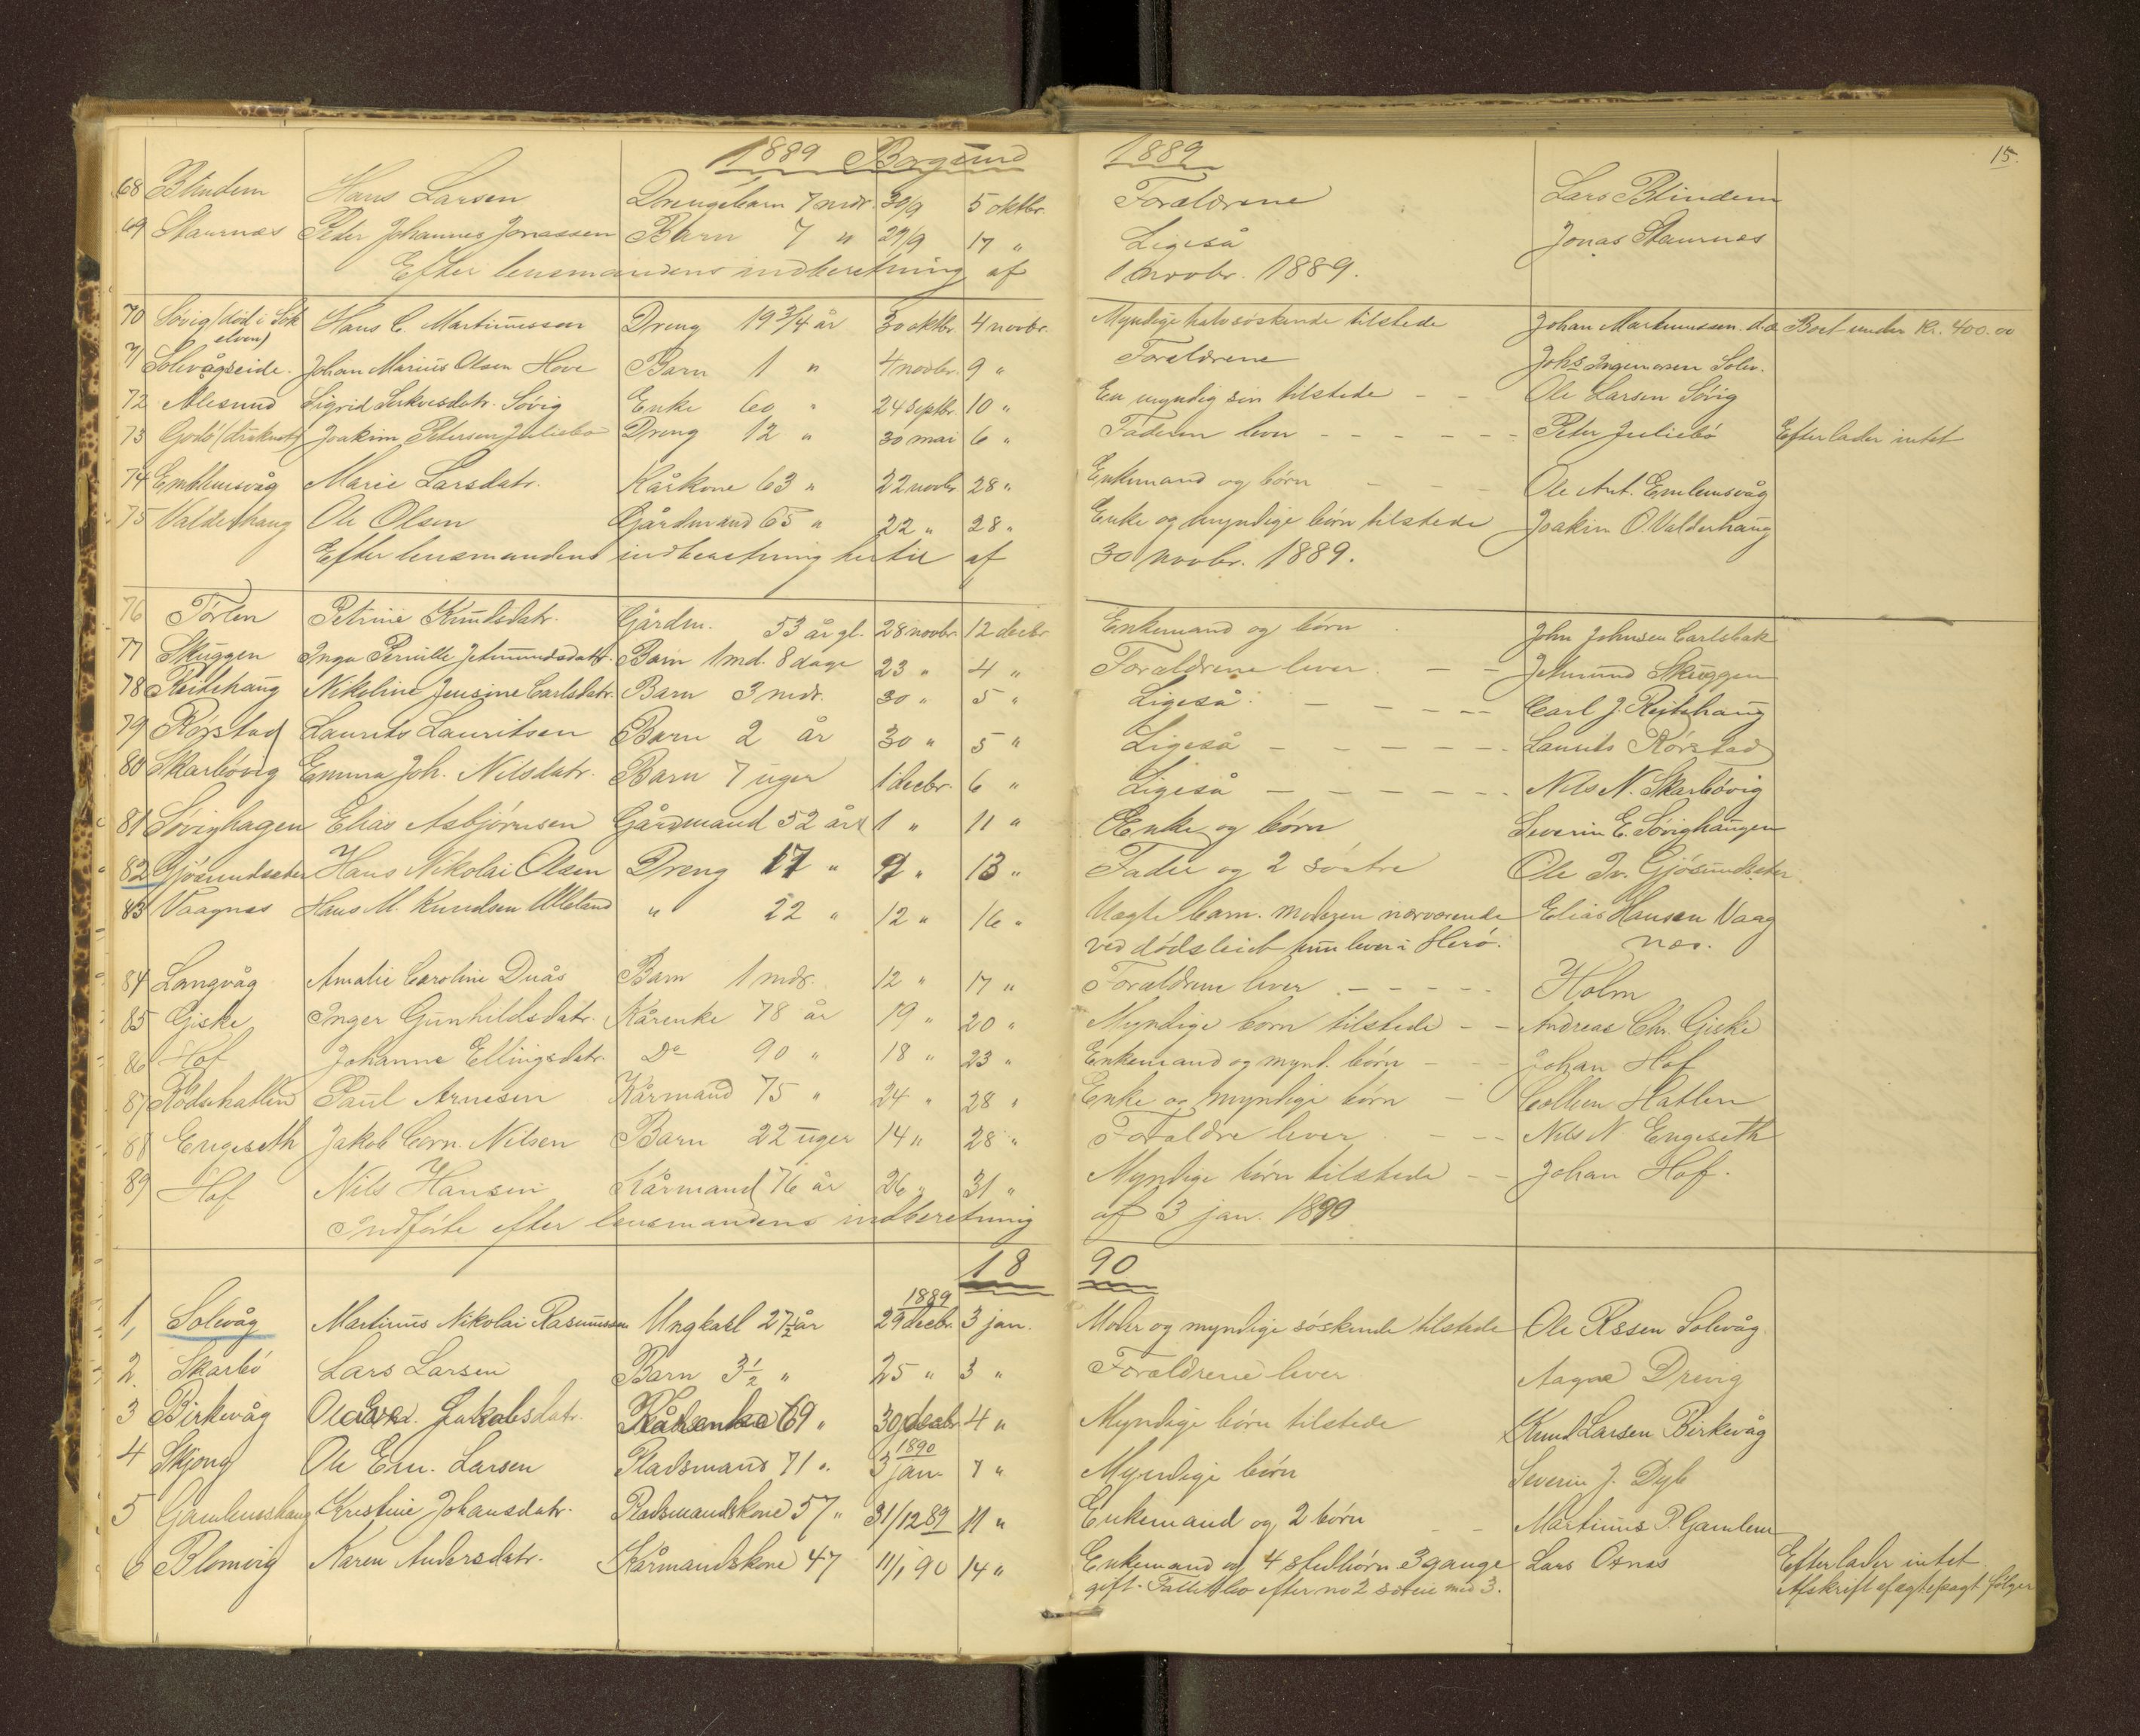 1889 Borgund 1889 15.
68 Blindem Hans Larsen Drengebarn 7 mdr. 30/9 5 oktbr. Forældrene Lars Blindem
69 Staurnæs Peder Johannes Jonassen Barn 7 " 29/9 17 " Ligeså Jonas Staurnæs
Efter lensmandens indberetning af 1 novbr. 1889.
70 Søvig (død i Søk elven) Hans C. Martinussen Dreng 19 3/4 år 30 oktbr. 4 novbr. Myndige halvsøskende tilstede Johan Martinussen d.a. Boet under Kr. 400.00
71 Solevågseide. Johan Marius Olsen Hove Barn 1 " 4 novbr. 9 " Forældrene Johs Ingemorsen Solev.
72 Alesund Sigrid Serkvesdatr. Søvig Enke 60 " 24 septbr. 10 " En myndig søn tilstede - - Ole Larsen Søvig
73 Godø (druknet) Joakim Petersen Juliebø Dreng 12 " 30 mai 6 " Faderen lever - - - - - - Peter Juliebø Efterlader intet
74 Emblemsvåg Marie Larsdatr. Kårkone 63 " 22 novbr. 28 " Enkemand og børn - - - Ole Ant. Emlemsvåg
75 Valderhaug Ole Olsen Gårdmand 65 " 22 " 28 " Enke og myndige børn tilstede Joakim O. Valderhaug
Efter lensmandens indberetning hertil af 30 novbr. 1889.
76 Tørlen Petrine Knudsdatr. Gårdm. 53 år gl. 28 novbr. 12 decbr. Enkemand og børn John Johnsen Carlsbak
77 Skuggen Inga Pernille Jetmundsdatr. Barn 1 md. 8 dage 23 " 4 " Forældrene lever. - - Jetmund Skuggen
78 Reitehaug Nikoline Jensine Carlsdatr. Barn 3 mdr. 30 " 5 " Ligeså. - - - - - Carl J. Reitehaug
79 Rørstad Laurits Lauritsen Barn 2 år 30 " 5 " Ligeså - - - - - - Laurits Rørstad
80 Skarbøvig Emma Joh. Nilsdatr. Barn 7 uger 1 decbr. 6 " Ligeså - - - - - - Nils N. Skarbøvig
81 Søvighagen Elias Asbjørnsen Gårdmand 52 år 1 " 11 " Enke og børn Severin E. Søvighaugen
82 Gjøsundsæter Hans Nikolai Olsen Dreng 17 " 9 " 13 " Fader og 2 søstre Ole Iv. Gjøsundsæter
83 Vaagnæs Hans M. Knudsen Ulleland " 22 " 12 " 16 " Uægte barn. moderen nærværende Elias Hansen Vaag
ved dødsleiet hun lever i Herø. næs.
84 Langvåg Amalie Caroline Duås Barn 1 mdr. 12 " 17 " Forældrene lever - - - - - Holm
85 Giske Inger Gunhildsdatr. Kårenke 78 år 19 " 20 " Myndige børn tilstede - - Andreas Chr. Giske
86 Hof Johanne Ellingsdatr. Do 90 " 18 " 23 " Enkemand og mynd. børn - - Johan Hof
87 Rødsehatlen Paul Arnesen Kårmand 75 " 24 " 28 " Enke og myndige børn - Colben Hatlen
88 Engeseth Jakob Corn. Nilsen Barn 22 uger 14 " 28 " Forældre lever - - - Nils N. Engeseth
89 Hof Nils Hansen Kårmand 76 år 26 " 31 " Myndige børn tilstede - - Johan Hof.
Indførte efter lensmandens indberetning af 3 jan. 1890
18 90
1, Solevåg Martinus Nikolai Rasmussen Ungkarl 27 1/2 år 1889 29 decbr. 3 jan. Moder og myndige søskende tilstede Ole Rssen Solevåg
2. Skarbø Lars Larsen Barn 3 1/2 " 25 " 3 " Forældrene lever Aagne Drevig
3 Birkevåg Jakobsdatr. Kårenke 69 " 30 decbr. 4 " Myndige børn tilstede Knud Larsen Birkevåg
4 Skjong Ole Em. Larsen Pladsmand 71 " 1890 3 jan. 7 " Myndige børn Severin J. Dyb
5 Gamlemshaug Kristine Johansdatr. Pladsmandskone 57 " 31/12 89 11 " Enkemand og 2 børn - - Martinus P. Gamlem
6 Blomvig Karen Andersdatr. Kårmandskone 47 11/1 90 14 " Enkemand og 4 stedbørn 3 gange Lars Osnæs Efterlader intet.
gift. efter no 2 med 3. Afskrift af ægtepagt følger